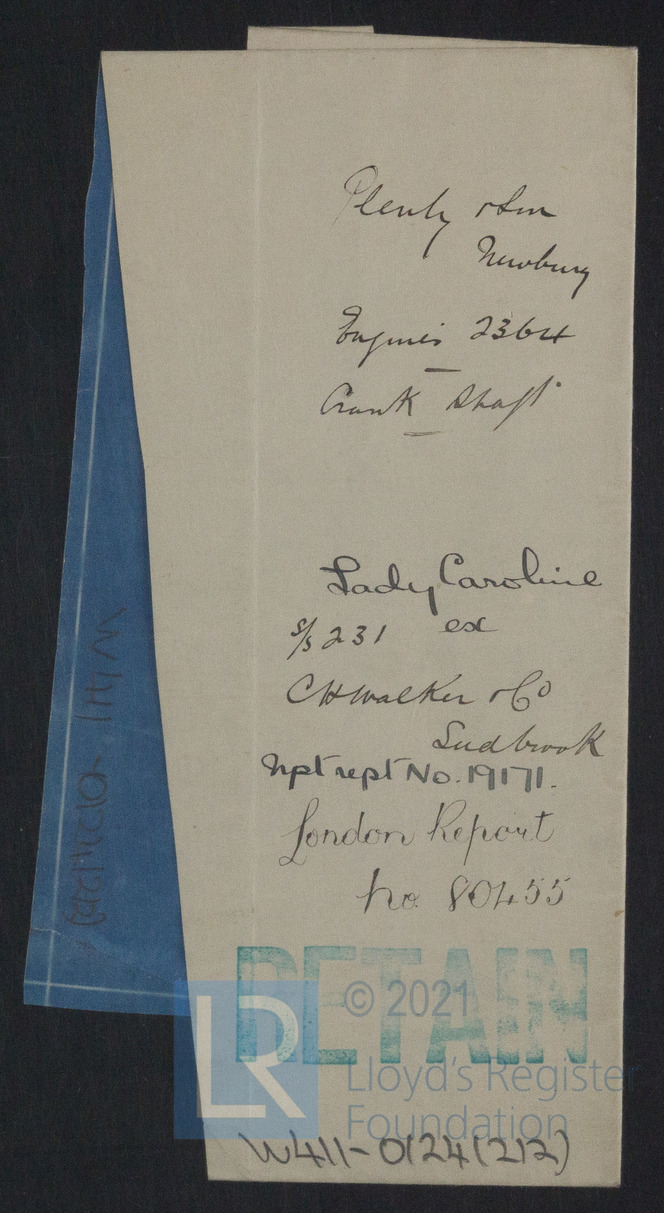 Plenty & Son
Newbury
Engines 2364
Crank Shaft
Lady Caroline
S/S 231 ex
C H Walker & Co
Sudbrook
Npt rept No. 19171.
London Report
No. 80455
RETAIN
LR
© 2021
Lloyd's Register
Foundation
W411-0124(212)